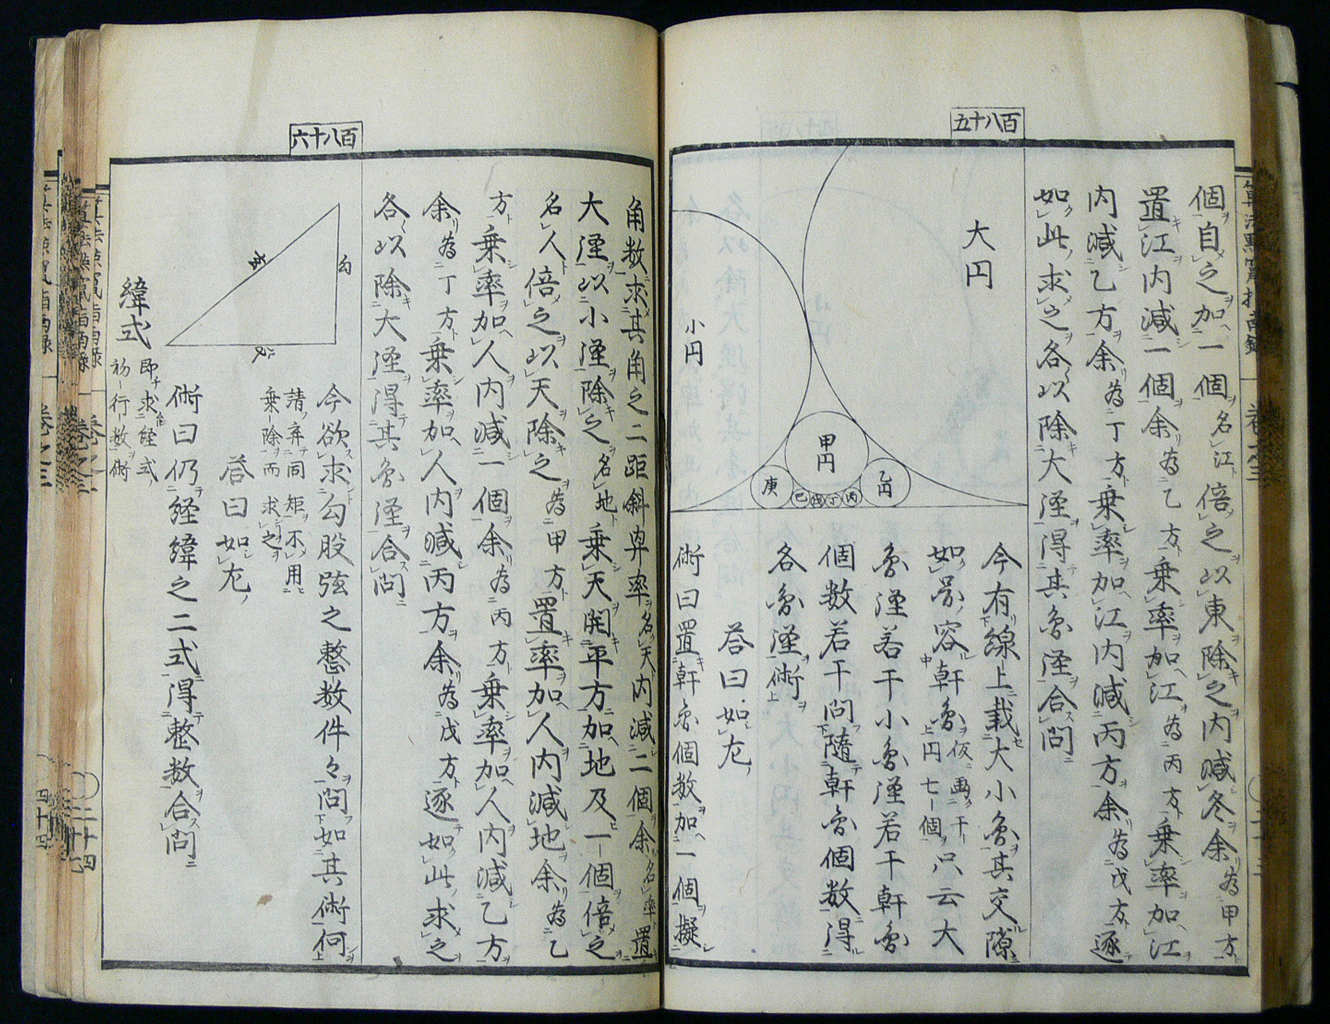 個自之加一個名江倍之以東除之内減冬余為甲方
置江内減一個余為乙方乗率加江為丙方乗率加江
内減乙方余為丁方乗率加江内減丙方余為戊方逐
如此求之各以除大径得其円径合問
百八十五
大円
小円
甲円
乙円
庚
己
戊
丁
丙
今有線上載大小円其交隙
如図容軒円仮画干上円七個只云大
円径若干小円径若干軒円
個数若干問随軒円個数得
各円径術
答曰如左
術曰置軒円個数加一個擬
角数求其角之二距斜舁率名天内減二個余名率置
大径以小径除之名地乗天開平方加地及一個倍之
名人倍之以天除之為甲方置率加人内減地余為乙
方乗率加人内減一個余為丙方乗率加人内減乙方
余為丁方乗率加人内減丙方余為戊方逐如此求之
各以除大径得其円径合問
百八十六
勾
股
玄
今欲求勾股弦之整数件々問如其術何
請弃同矩不用
乗除而求之
答曰如左
術曰仍経緯之二式得整数合問
緯式
即求経式
初行数術
巻之三
二十四
四十四